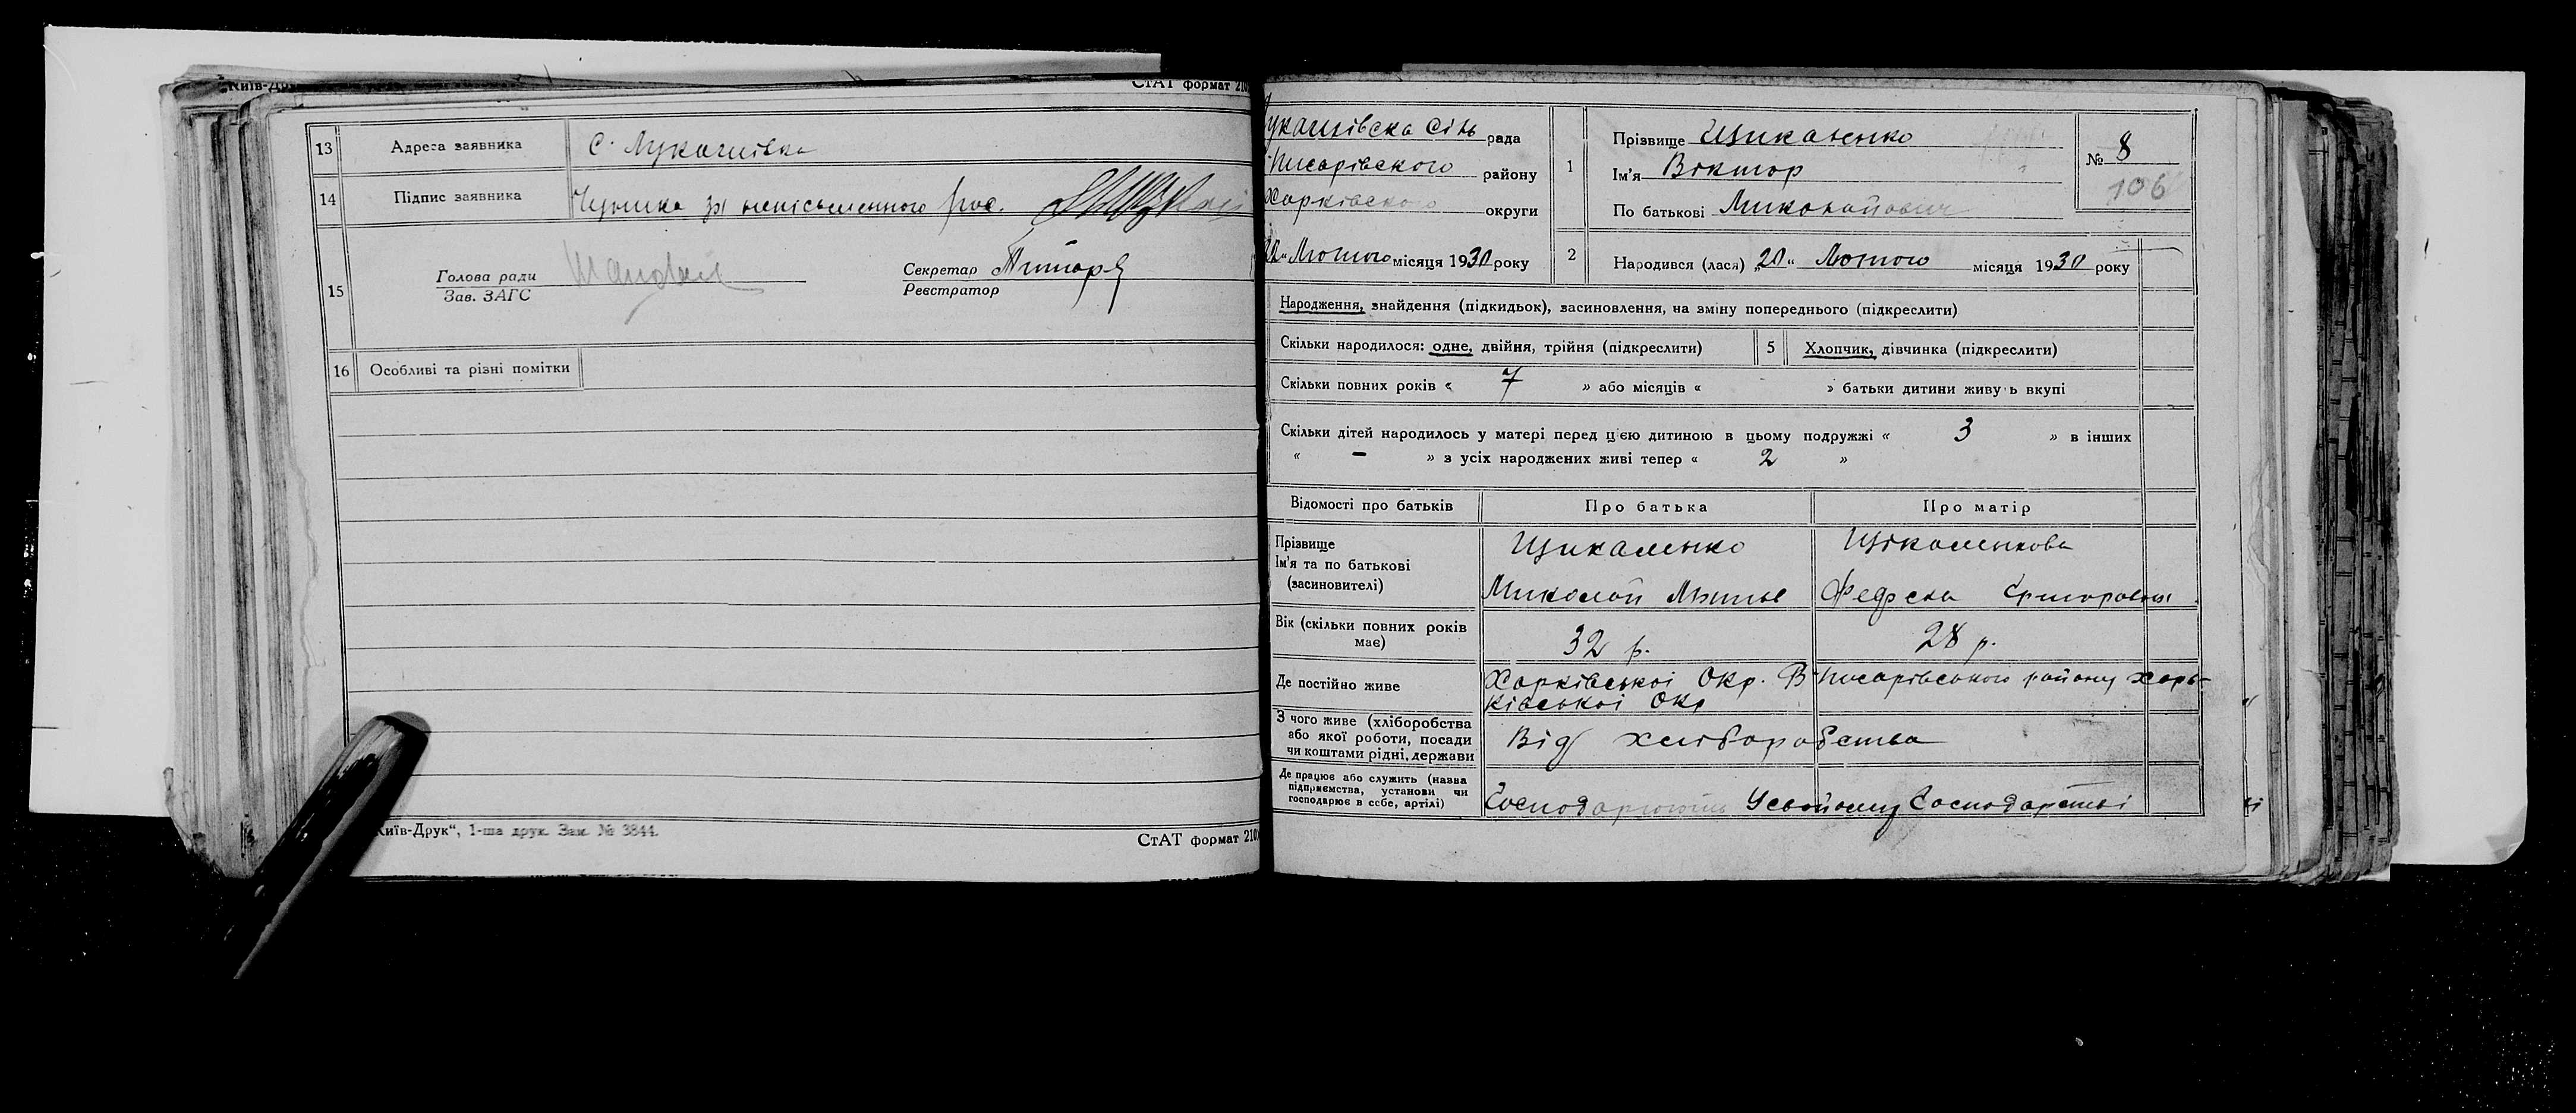 Київ-Дру
СтАТ формат 210
13 Адреса заявника С. Лукашівка
14 Підпис заявника неписьменного рос.
15 Голова ради
Зав. ЗАГС
Секретар
Реєстратор
16 Особливі та різні помітки
Київ-Друк“, 1-ша друк. Зам. № 3844.
СтАТ формат 210
укашівска Сіль рада
Писарівского району
Харківского округи
20“ Лютого місяця 1930 року
1 Прізвище Цикаленко
Ім'я Віктор
По батькові Миколайович
№ 8
106
2 Народився (лася) „20“ Лютого місяця 1930 року
Народження, знайдення (підкидьок), засиновлення, на зміну попереднього (підкреслити)
Скільки народилося: одне, двійня, трійня (підкреслити) 5 Хлопчик, дівчинка (підкреслити)
Скільки повних років « 7 » або місяців « » батьки дитини живуть вкупі
Скільки дітей народилось у матері перед цією дитиною в цьому подружжі « 3 » в інших
« – » з усіх народжених живі тепер « 2 »
Відомості про батьків Про батька Про матір
Прізвище Цикаленко Цікаленкова
Ім'я та по батькові
(засновителі) Миколай Федоска Григоровна
Вік (скільки повних років
має) 32 р. 28 р.
Де постійно живе Харківської Окр. В Писарівського району Харь-
ківської Окр
З чого живе (хліборобства
або якої роботи, посади
чи коштами рідні, держави Від хліборобства
Де працює або служить (назва
підприємства, установи чи
господарює в себе, артілі) Господарюють Усвойому Господарстві